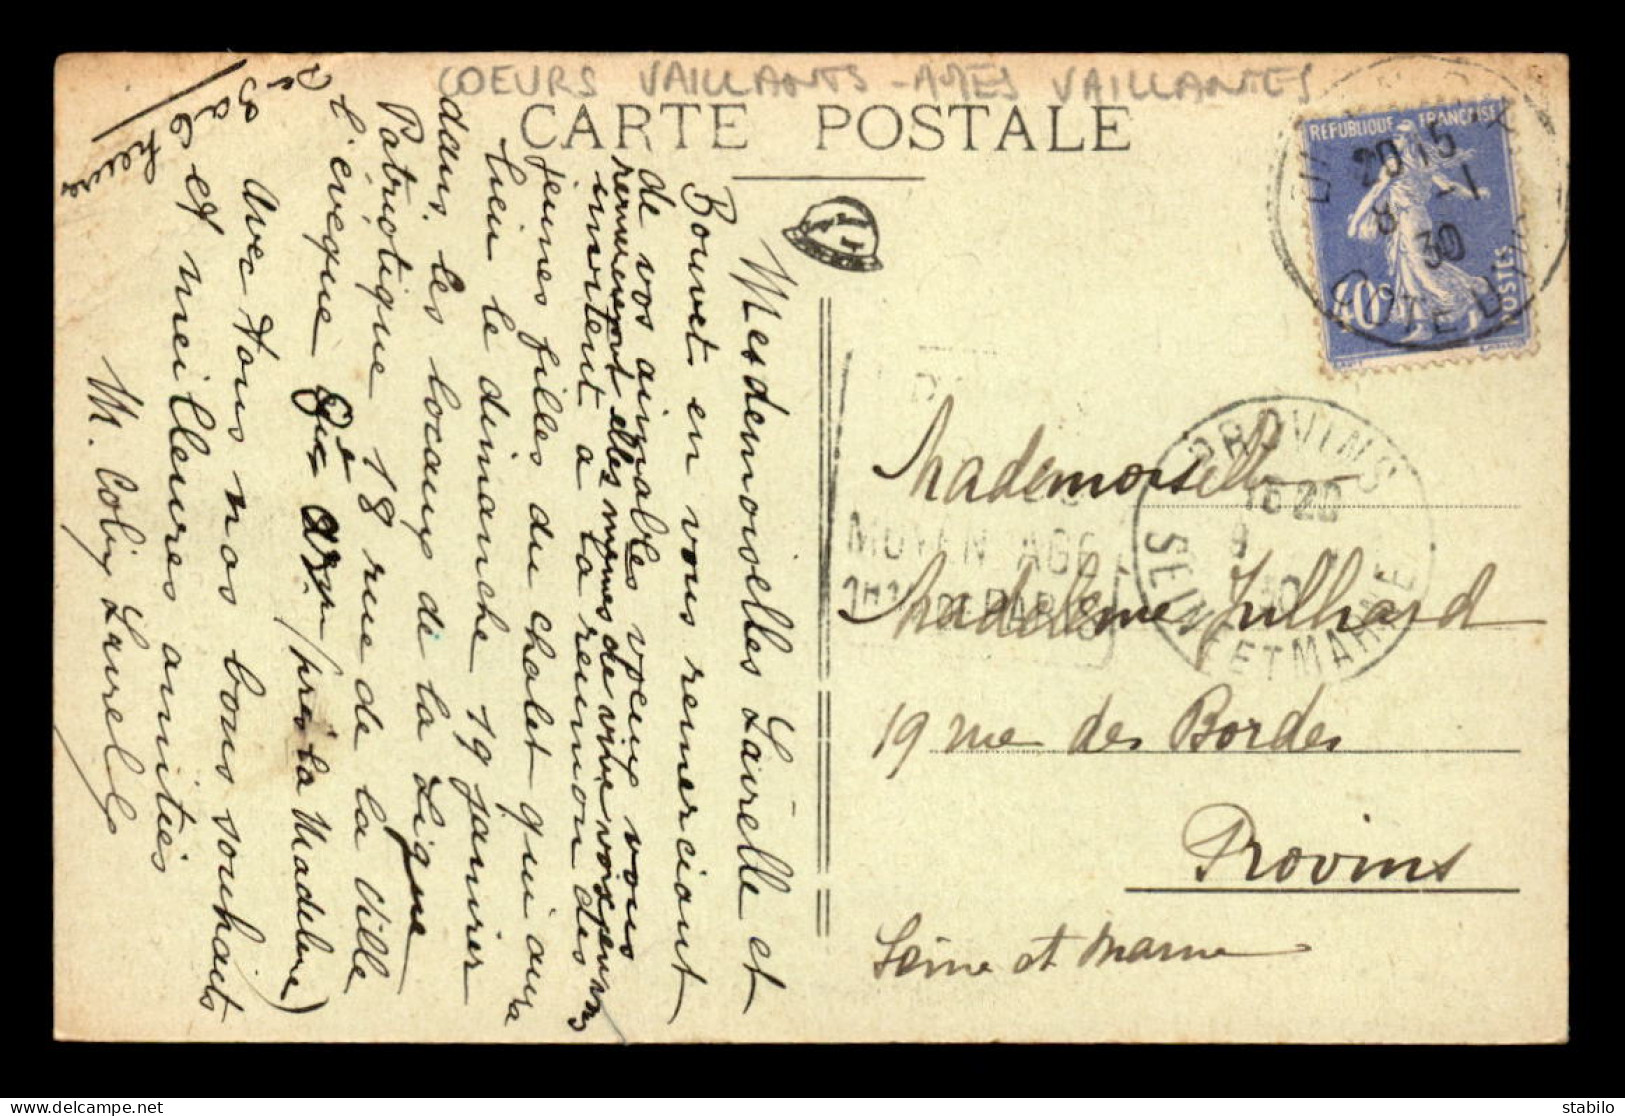 COEURS VAILLANTS - AMES VAILLANTES
CARTE POSTALE
Mesdemoiselles Laurelle et
Bouvet en vous remerciant
de vos aimables voeux vous
renouvellent elles mêmes de vive voix pour vous
invitent à la réunion des
jeunes filles du chalet qui aura
lieu le dimanche 19 janvier
dans les locaux de la Ligue
Patriotique 18 rue de la ville
l'évêque (près la Madeleine)
Avec tous nos bons souhaits
et meilleures amitiés
M. Coby Laurelle
heures
REPUBLIQUE FRANÇAISE
40c
POSTES
20 15
8 -1
30
PROVINS
SEINE ET MARNE
MOYEN AGE
DE PARIS
Mademoiselle
Madeleine Julhard
19 rue des Bordes
Provins
Seine et Marne
stabilo